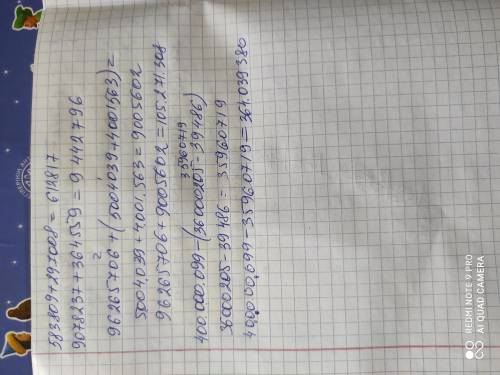 583809+29.008=612817
9078237+364559=9 442 796
2 1
96265706+(5004039+4001563)=
5004.039+4.001.563=9005602
96265706+9005602=105.271.308
35960719
400.000.099-(36000205-39486)
36000205-39486=35960719
40,00 00,099-35960719=364.039380
REDMI NOTE 9 PRO
AI QUAD CAMERA